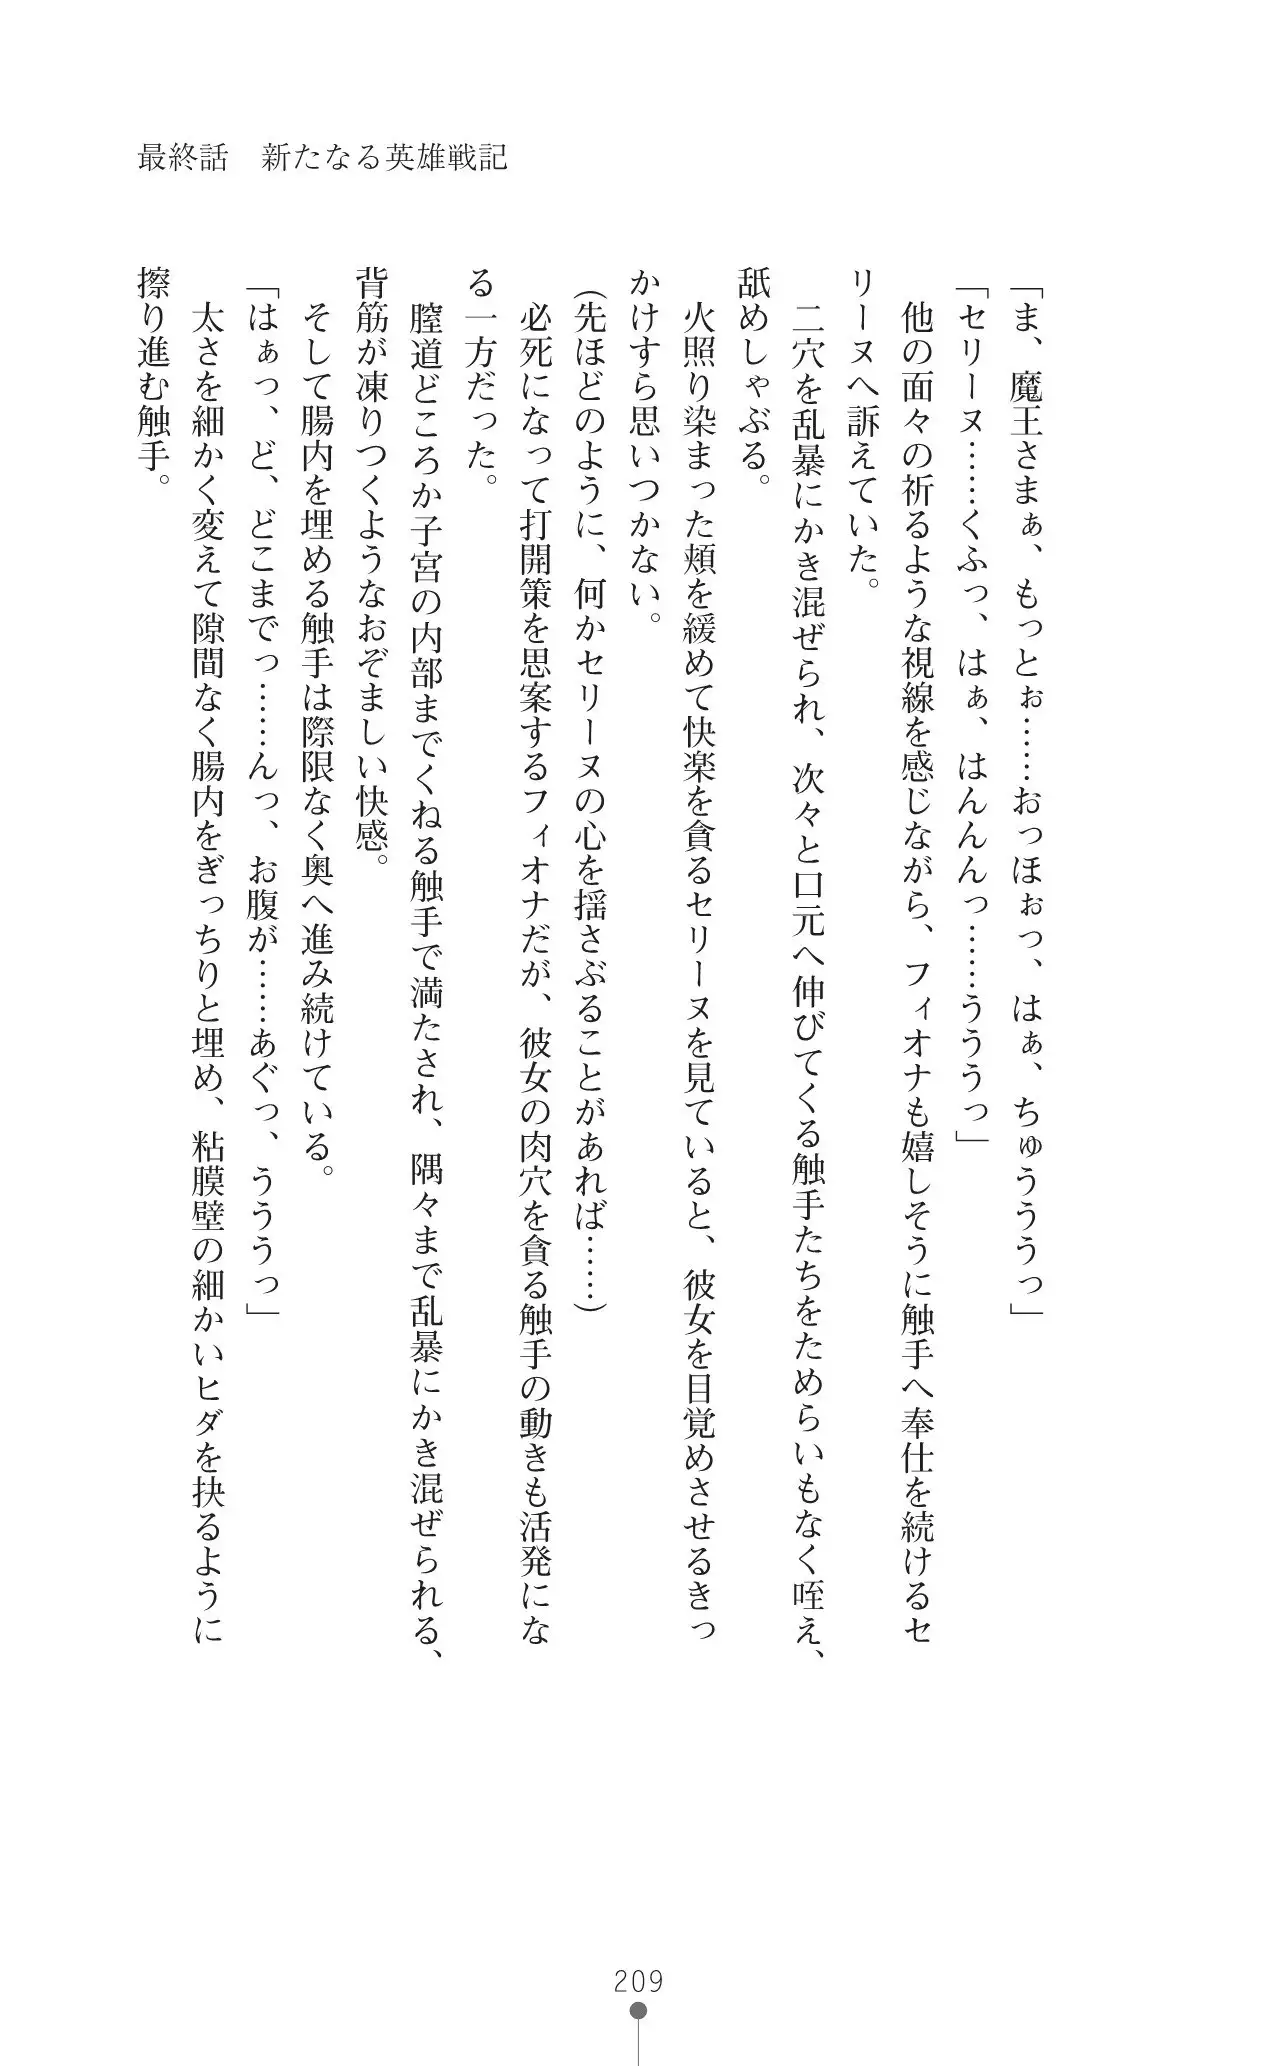 最終話　新たなる英雄戦記
「ま、魔王さまぁ、もっとぉ……おっほぉっ、はぁ、ちゅうううっ」
「セリーヌ……くふっ、はぁ、はんんんっ……うううっ」
　他の面々の祈るような視線を感じながら、フィオナも嬉しそうに触手へ奉仕を続けるセ
リーヌへ訴えていた。
　二穴を乱暴にかき混ぜられ、次々と口元へ伸びてくる触手たちをためらいもなく咥え、
舐めしゃぶる。
　火照り染まった頬を緩めて快楽を貪るセリーヌを見ていると、彼女を目覚めさせるきっ
かけすら思いつかない。
（先ほどのように、何かセリーヌの心を揺さぶることがあれば……）
　必死になって打開策を思案するフィオナだが、彼女の肉穴を貪る触手の動きも活発にな
る一方だった。
　膣道どころか子宮の内部までくねる触手で満たされ、隅々まで乱暴にかき混ぜられる、
背筋が凍りつくようなおぞましい快感。
　そして腸内を埋める触手は際限なく奥へ進み続けている。
「はぁっ、ど、どこまでっ……んっ、お腹が……あぐっ、うううっ」
　太さを細かく変えて隙間なく腸内をぎっちりと埋め、粘膜壁の細かいヒダを抉るように
擦り進む触手。
209